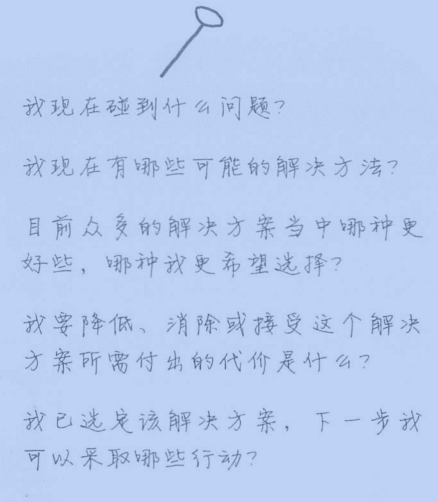 我现在碰到什么问题?
我现在有哪些可能的解决方法?
目前众多的解决方案当中哪种更
好些，哪种我更希望选择?
我要降低、消除或接受这个解决
方案所需付出的代价是什么?
我已选定该解决方案，下一步我
可以采取哪些行动?